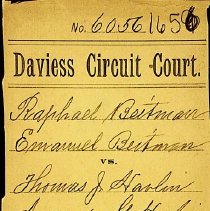 No. 6056 1656
Daviess Circuit Court.
Raphael Beitman
Emanuel Beitman
vs.
Thomas J. Havlin